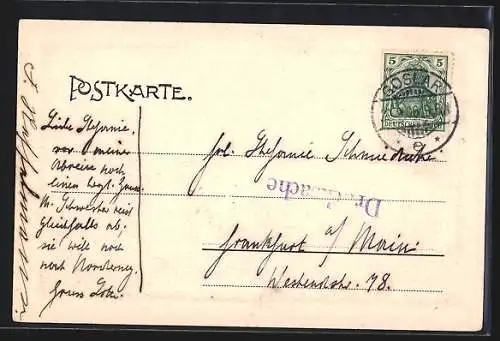 POSTKARTE.
5 5
GOSLAR
DEUTSCHES REICH
Liebe Stefanie,
vor meiner
Abreise noch
einen herzl. Gruss.
M. Schwester reist
gleichfalls ab,
sie will noch
nach Norderney.
Gruss
Frl. Stefanie
Drucksache
Frankfurt a/Main
78.